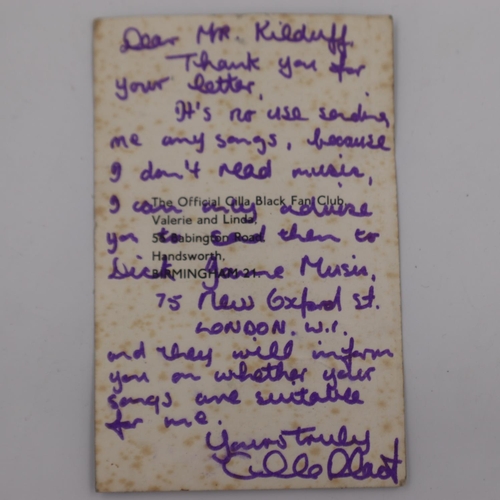 Dear MR. Kilduff
Thank you for
your letter,
It's no use sending
me any songs, because
I don't read music,
I can only advise
The Official Cilla Black Fan Club,
Valerie and Linda,
you to send them to
58 Babington Road,
Handsworth,
Dick James Music,
BIRMINGHAM 21.
75 New Oxford St.
LONDON. W.1.
and they will inform
you on whether your
songs are suitable
for me.
Yours Truly
Cilla Black